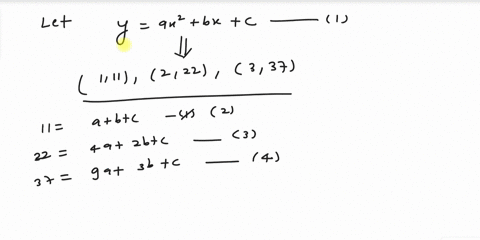 Let y = ax² + bx + c —— (1)
⇓
(1,11), (2,22), (3,37)
11 = a+b+c — (2)
22 = 4a+ 2b+c —— (3)
37 = 9a+ 3b+c —— (4)